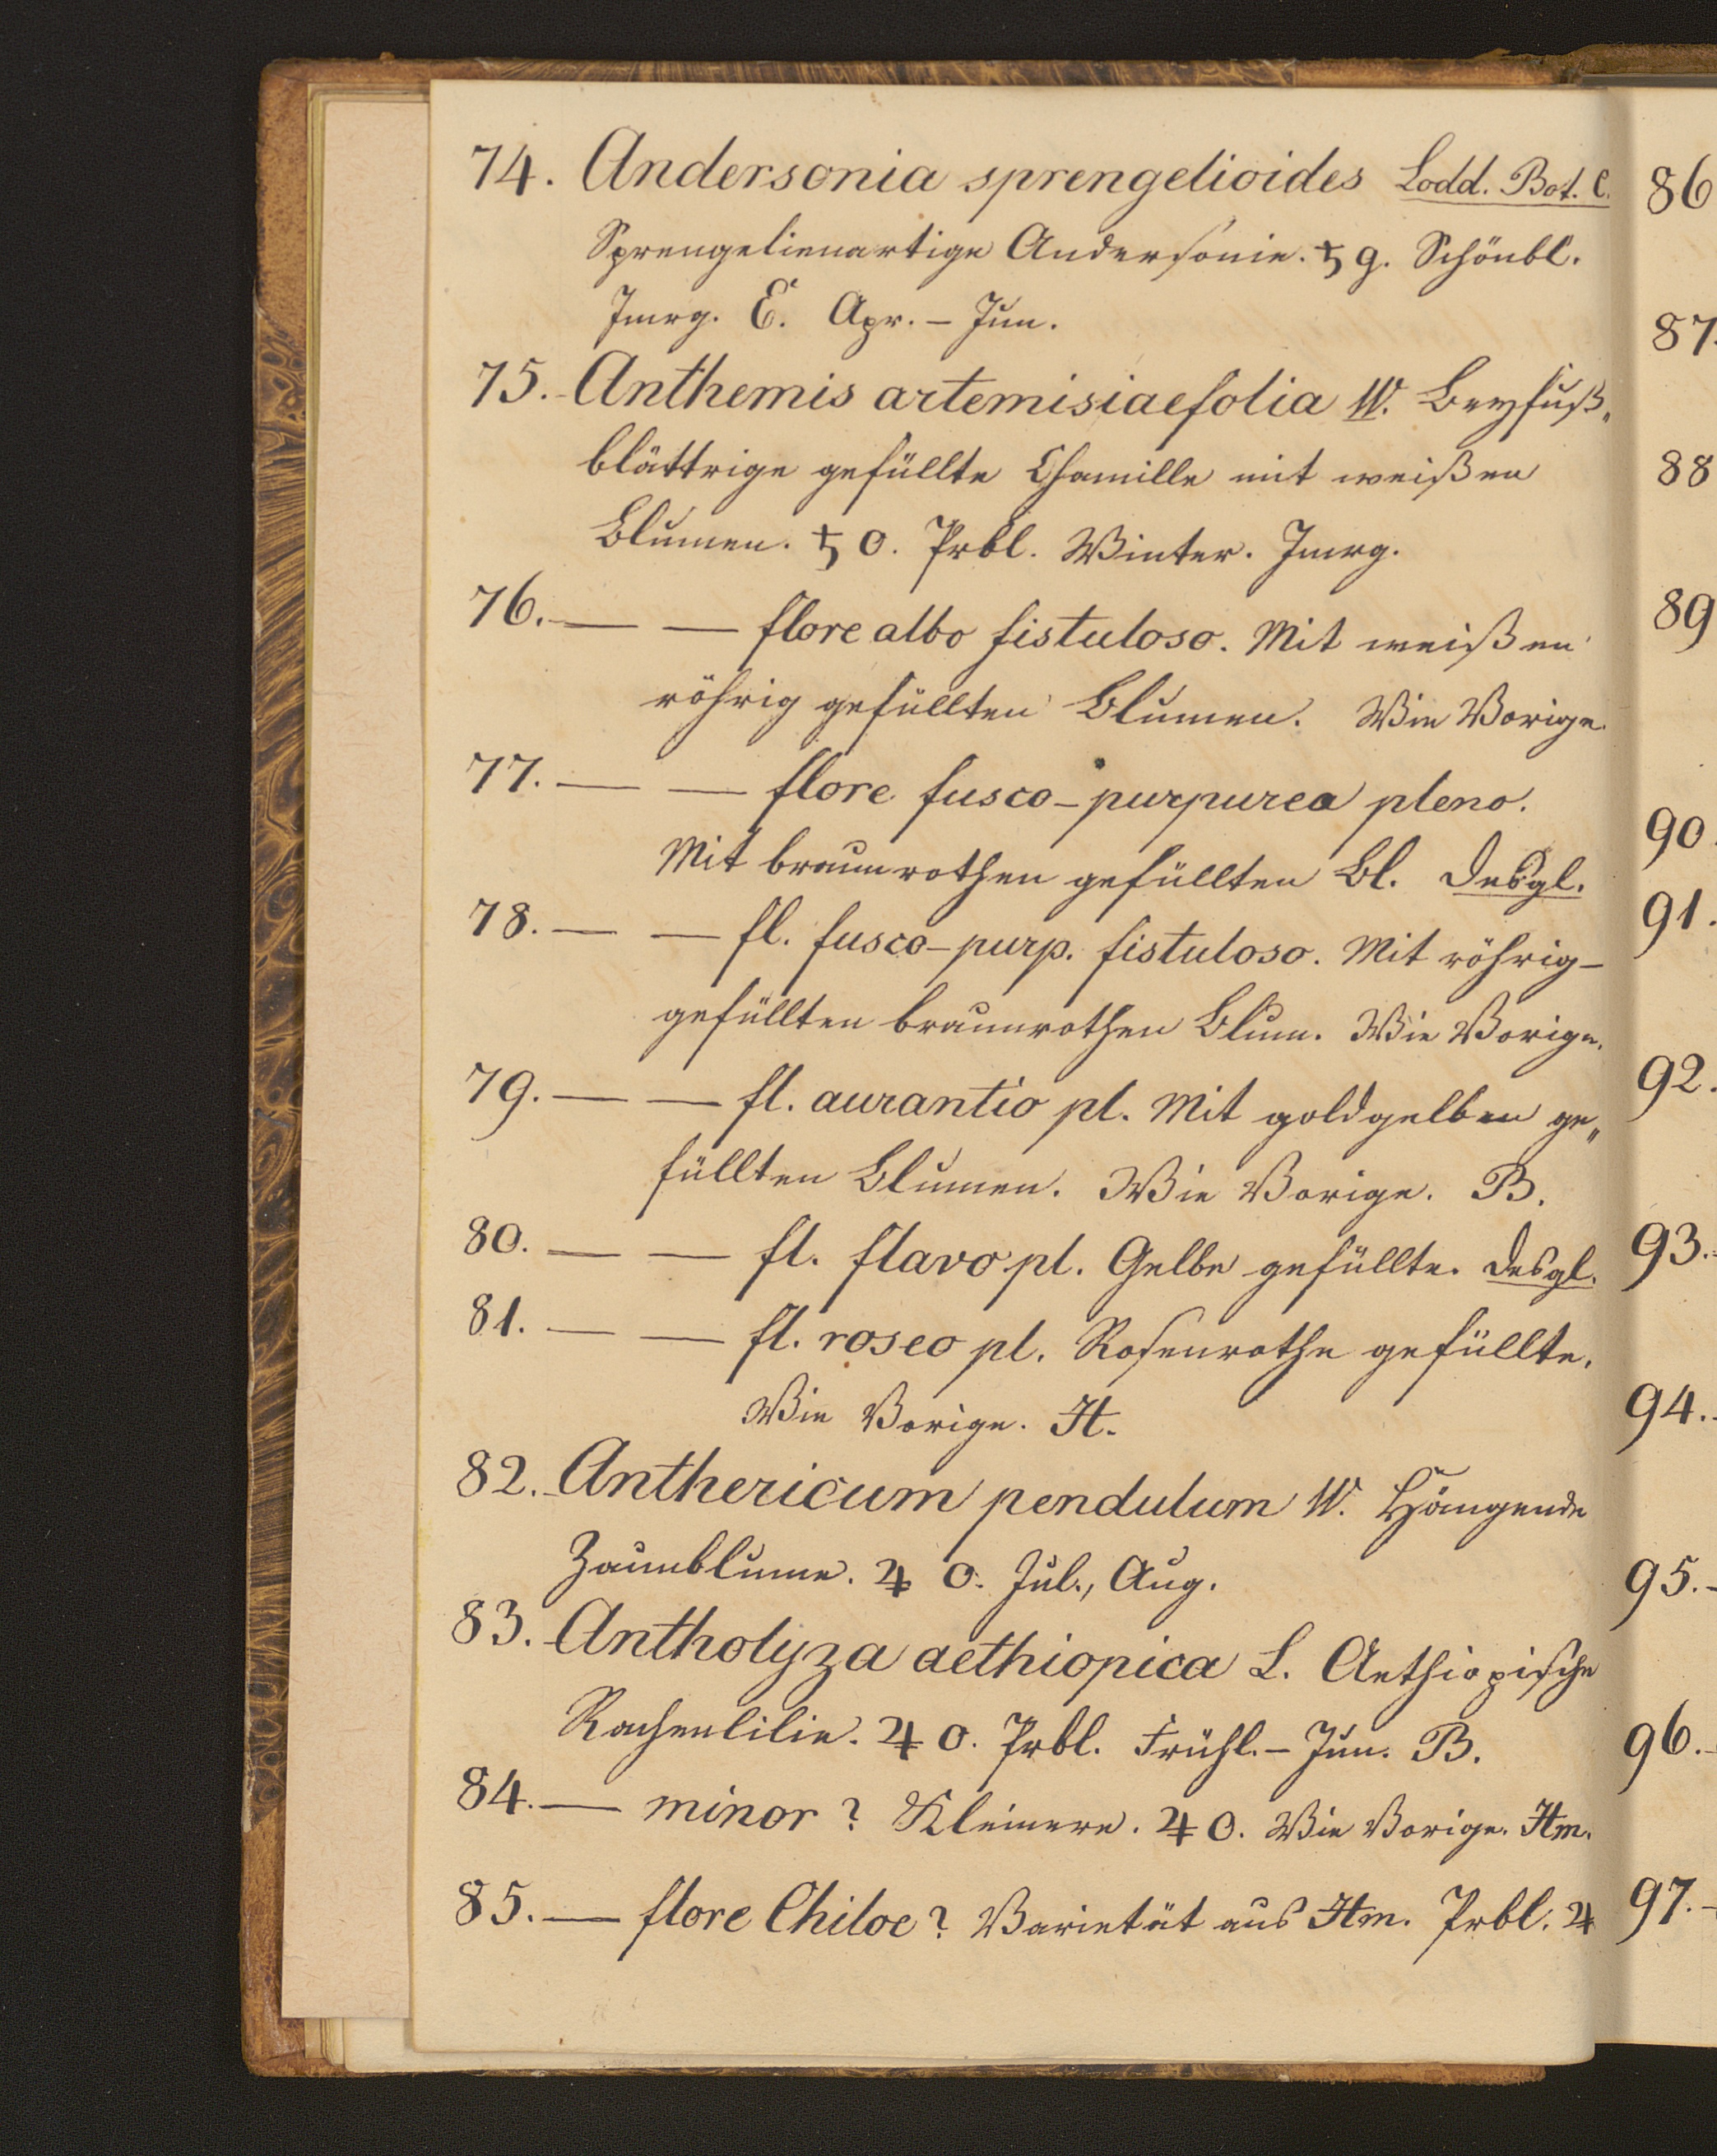 74. Andersonia sprengelioides Lodd. Bot. C.
Sprengelienartige Andersonie. ♄ g. Schönbl.
Immrg. E. Apr. – Jun.
75. Anthemis artemisiaefolia W. Beyfuß„
blättrige gefüllte Chamille mit weißen
Blumen. ♄ O. Prbl. Winter. Immrg.
76. — — flore albo fistuloso. Mit weißen
röhrig gefüllten Blumen. Wie Vorige.
77. — — flore fusco-purpurea pleno.
Mit braunrothen gefüllten Bl. Desgl.
78. — — fl. fusco-purp. fistuloso. Mit röhrig-
gefüllten braunrothen Blum. Wie Vorige.
79. — — fl. aurantio pl. Mit goldgelben ge„
füllten Blumen. Wie Vorige. B.
80. — — fl. flavo pl. Gelbe gefüllte. Desgl.
81. — — fl. roseo pl. Rosenrothe gefüllte.
Wie Vorige. H.
82. Anthericum pendulum W. Hängende
Zaunblume. ♃ O. Jul., Aug.
83. Antholyza aethiopica L. Aethiopische
Rachenlilie. ♃ O. Prbl. Frühl. – Jun. B.
84. — minor? Kleinere. ♃ O. Wie Vorige. Hm.
85. — flore Chiloe? Varietät aus Hm. Prbl. ♃
86
87.
88
89
90.
91.
92.
93.
94.
95.
96.
97.